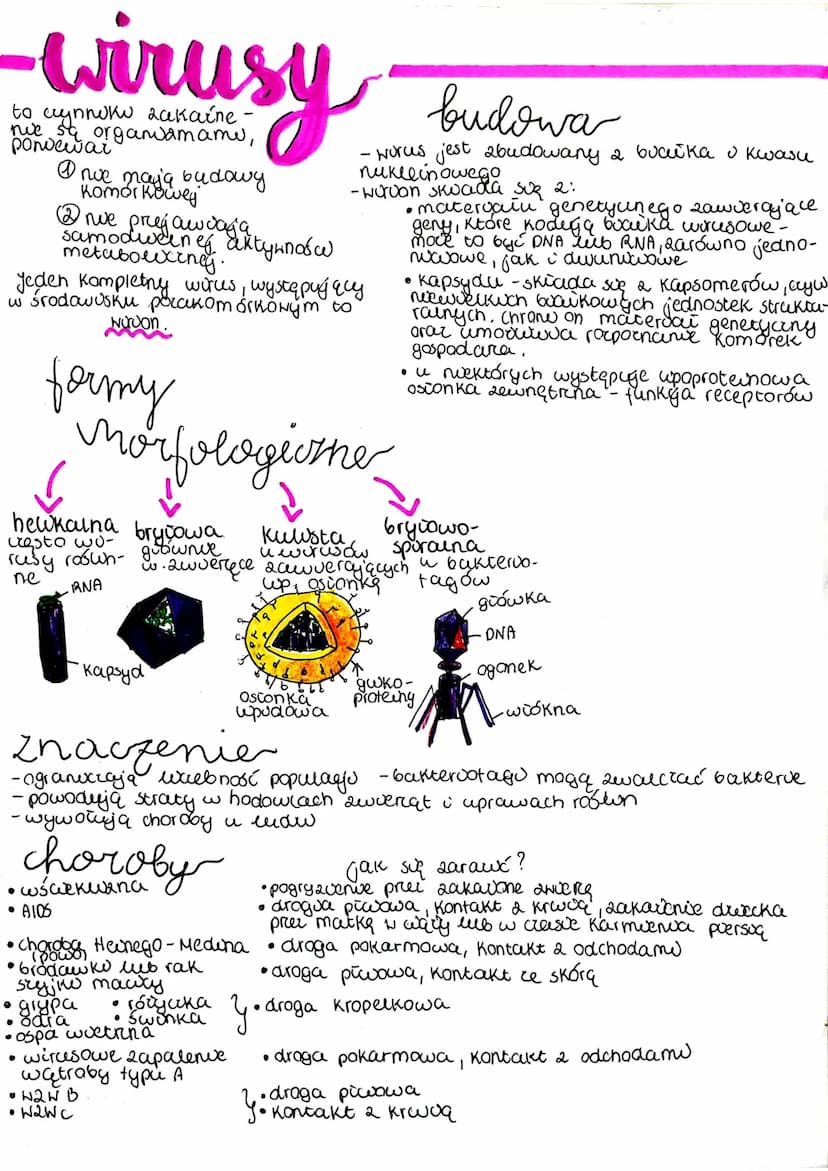 wirusy
to czynniki zakaźne -
nie są organizmami,
ponieważ
① nie mają budowy
komórkowej
② nie przejawiają
samodzielnej aktywności
metabolicznej.
Jeden kompletny wirus, występujący
w środowisku pozakomórkowym to
wirion.
budowa
- wirus jest zbudowany z białka i kwasu
nukleinowego
- wirion składa się z:
• materiału genetycznego zawierające
geny, które kodują białka wirusowe -
może to być DNA lub RNA, zarówno jedno-
niciowe, jak i dwuniciowe
• kapsydu - składa się z kapsomerów, czyli
niewielkich białkowych jednostek struktu-
ralnych. chroni on materiał genetyczny
oraz umożliwia rozpoznanie komórek
gospodarza.
• u niektórych występuje lipoproteinowa
osłonka zewnętrzna - funkcja receptorów
formy
morfologiczne
helikalna
często wi-
rusy roślin-
ne
RNA
kapsyd
bryłowa
głównie
w. zwierzęce
kulista
u wirusów
zawierających
lip. osłonkę
osłonka
lipidowa
gliko-
proteiny
bryłowo-
spiralna
u bakterio-
fagów
główka
DNA
ogonek
włókna
znaczenie
- ograniczają liczebność populacji - bakteriofagi mogą zwalczać bakterie
- powodują straty w hodowlach zwierząt i uprawach roślin
- wywołują choroby u ludzi
choroby
jak się zarazić?
• wścieklizna
• pogryzienie przez zakażone zwierzę
• AIDS
• drogia płciowa, kontakt z krwią, zakażenie dziecka
przez matkę w ciąży lub w czasie karmienia piersią
• choroba Heinego-Medina
(polio)
• droga pokarmowa, kontakt z odchodami
• brodawki lub rak
szyjki macicy
• droga płciowa, kontakt ze skórą
• grypa • różyczka
• odra • świnka
• ospa wietrzna
• droga kropelkowa
• wirusowe zapalenie
wątroby typu A
• droga pokarmowa, kontakt z odchodami
• WZW B
• WZW C
• droga płciowa
• kontakt z krwią